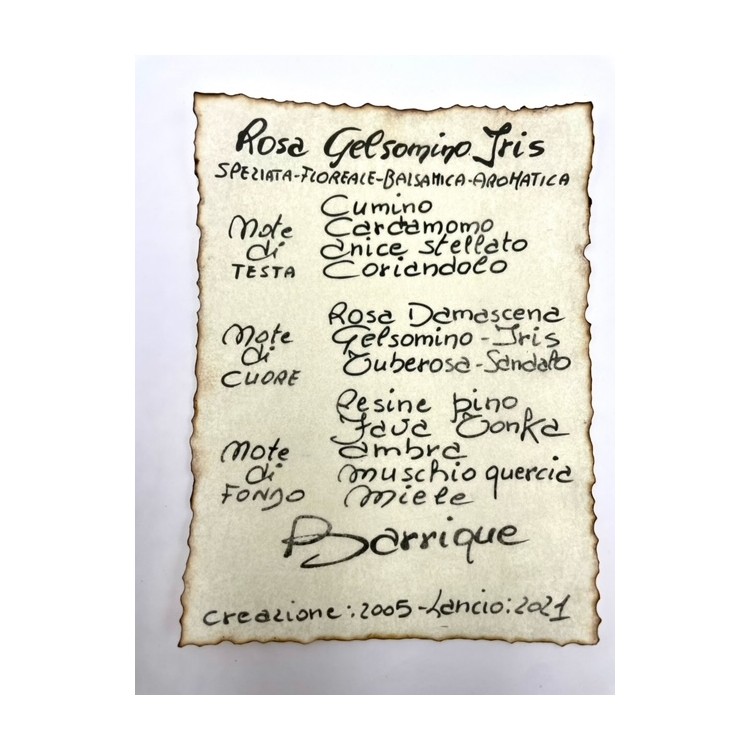 Rosa Gelsomino Iris
SPEZIATA-FLOREALE-BALSAMICA-AROMATICA
Note di TESTA
Cumino
Cardamomo
anice stellato
Coriandolo
Note di CUORE
Rosa Damascena
Gelsomino-Iris
Tuberosa-Sandalo
Note di FONDO
Resine pino
Fava Tonka
ambra
muschio quercia
miele
Barrique
creazione:2005-Lancio:2021